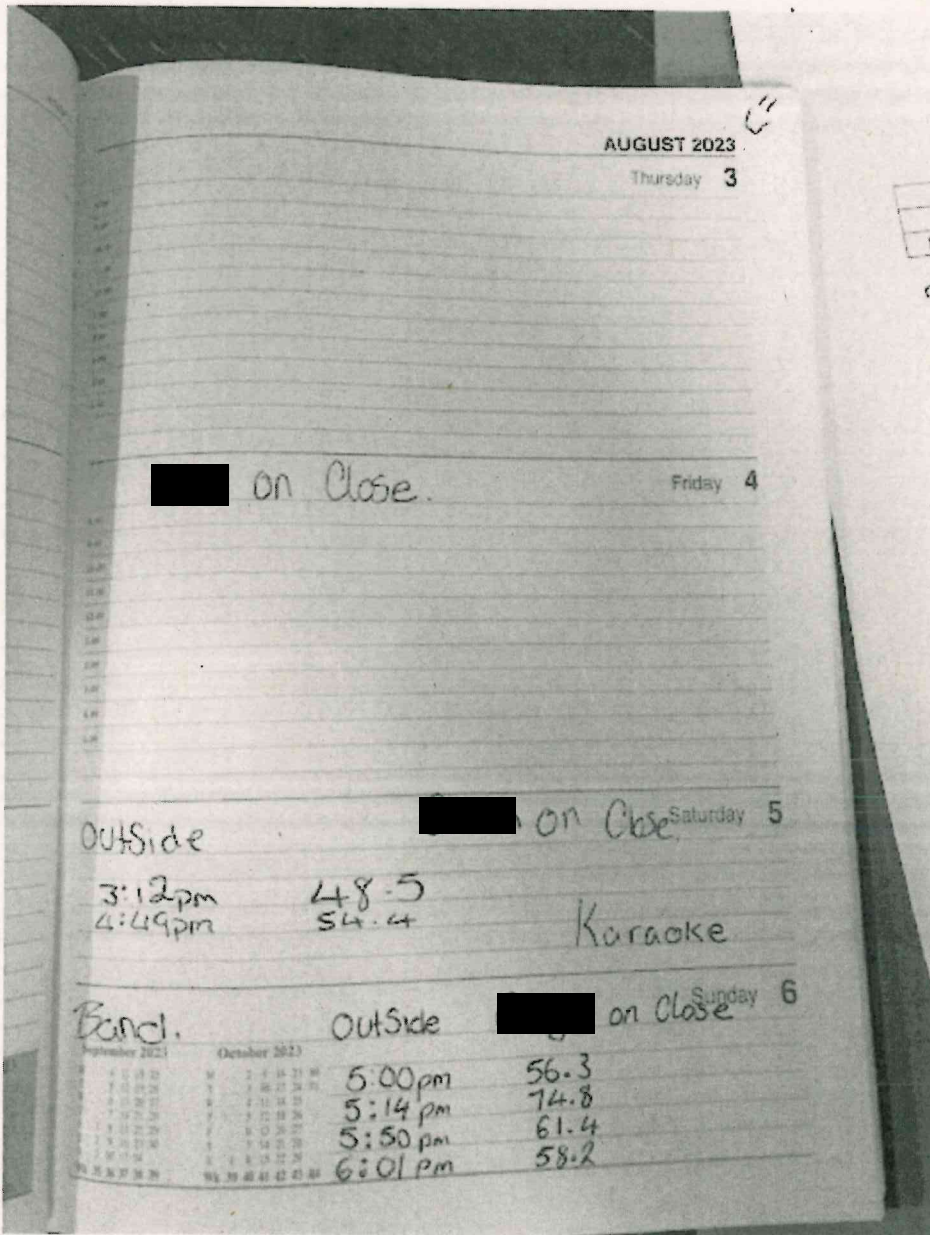 AUGUST 2023
Thursday 3
on Close. Friday 4
on Close Saturday 5
OutSide
3:12pm 48.5
4:49pm 54.4
Karaoke
Sunday 6
Band. OutSide on Close
September 2023 October 2023
5:00pm 56.3
5:14pm 74.8
5:50pm 61.4
6:01pm 58.2